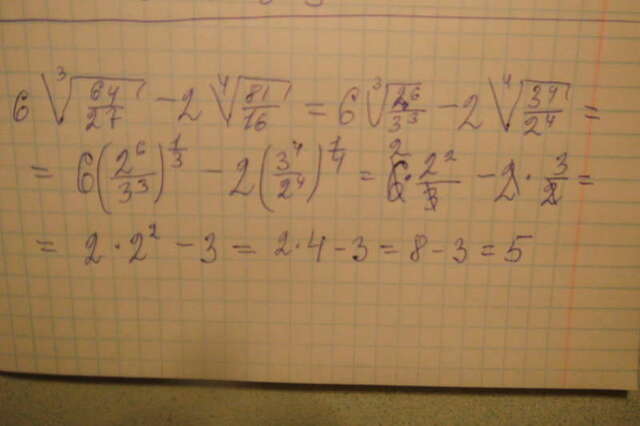 6 ∛(64/27) − 2 ∜(81/16) = 6 ∛(2⁶/3³) − 2 ∜(3⁴/2⁴) =
= 6(2⁶/3³)^(1/3) − 2(3⁴/2⁴)^(1/4) = 6̸² · 2²/3̸ − 2̸ · 3/2̸ =
= 2 · 2² − 3 = 2 · 4 − 3 = 8 − 3 = 5